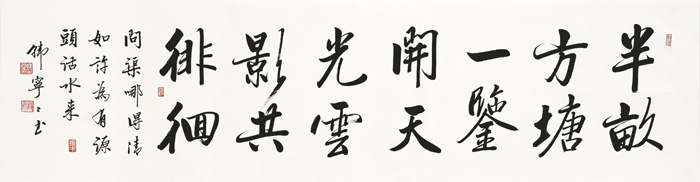 半畝
方塘
一鑒
開天
光雲
影共
徘徊
問渠哪得清
如許為有源
頭活水来
偉寧書